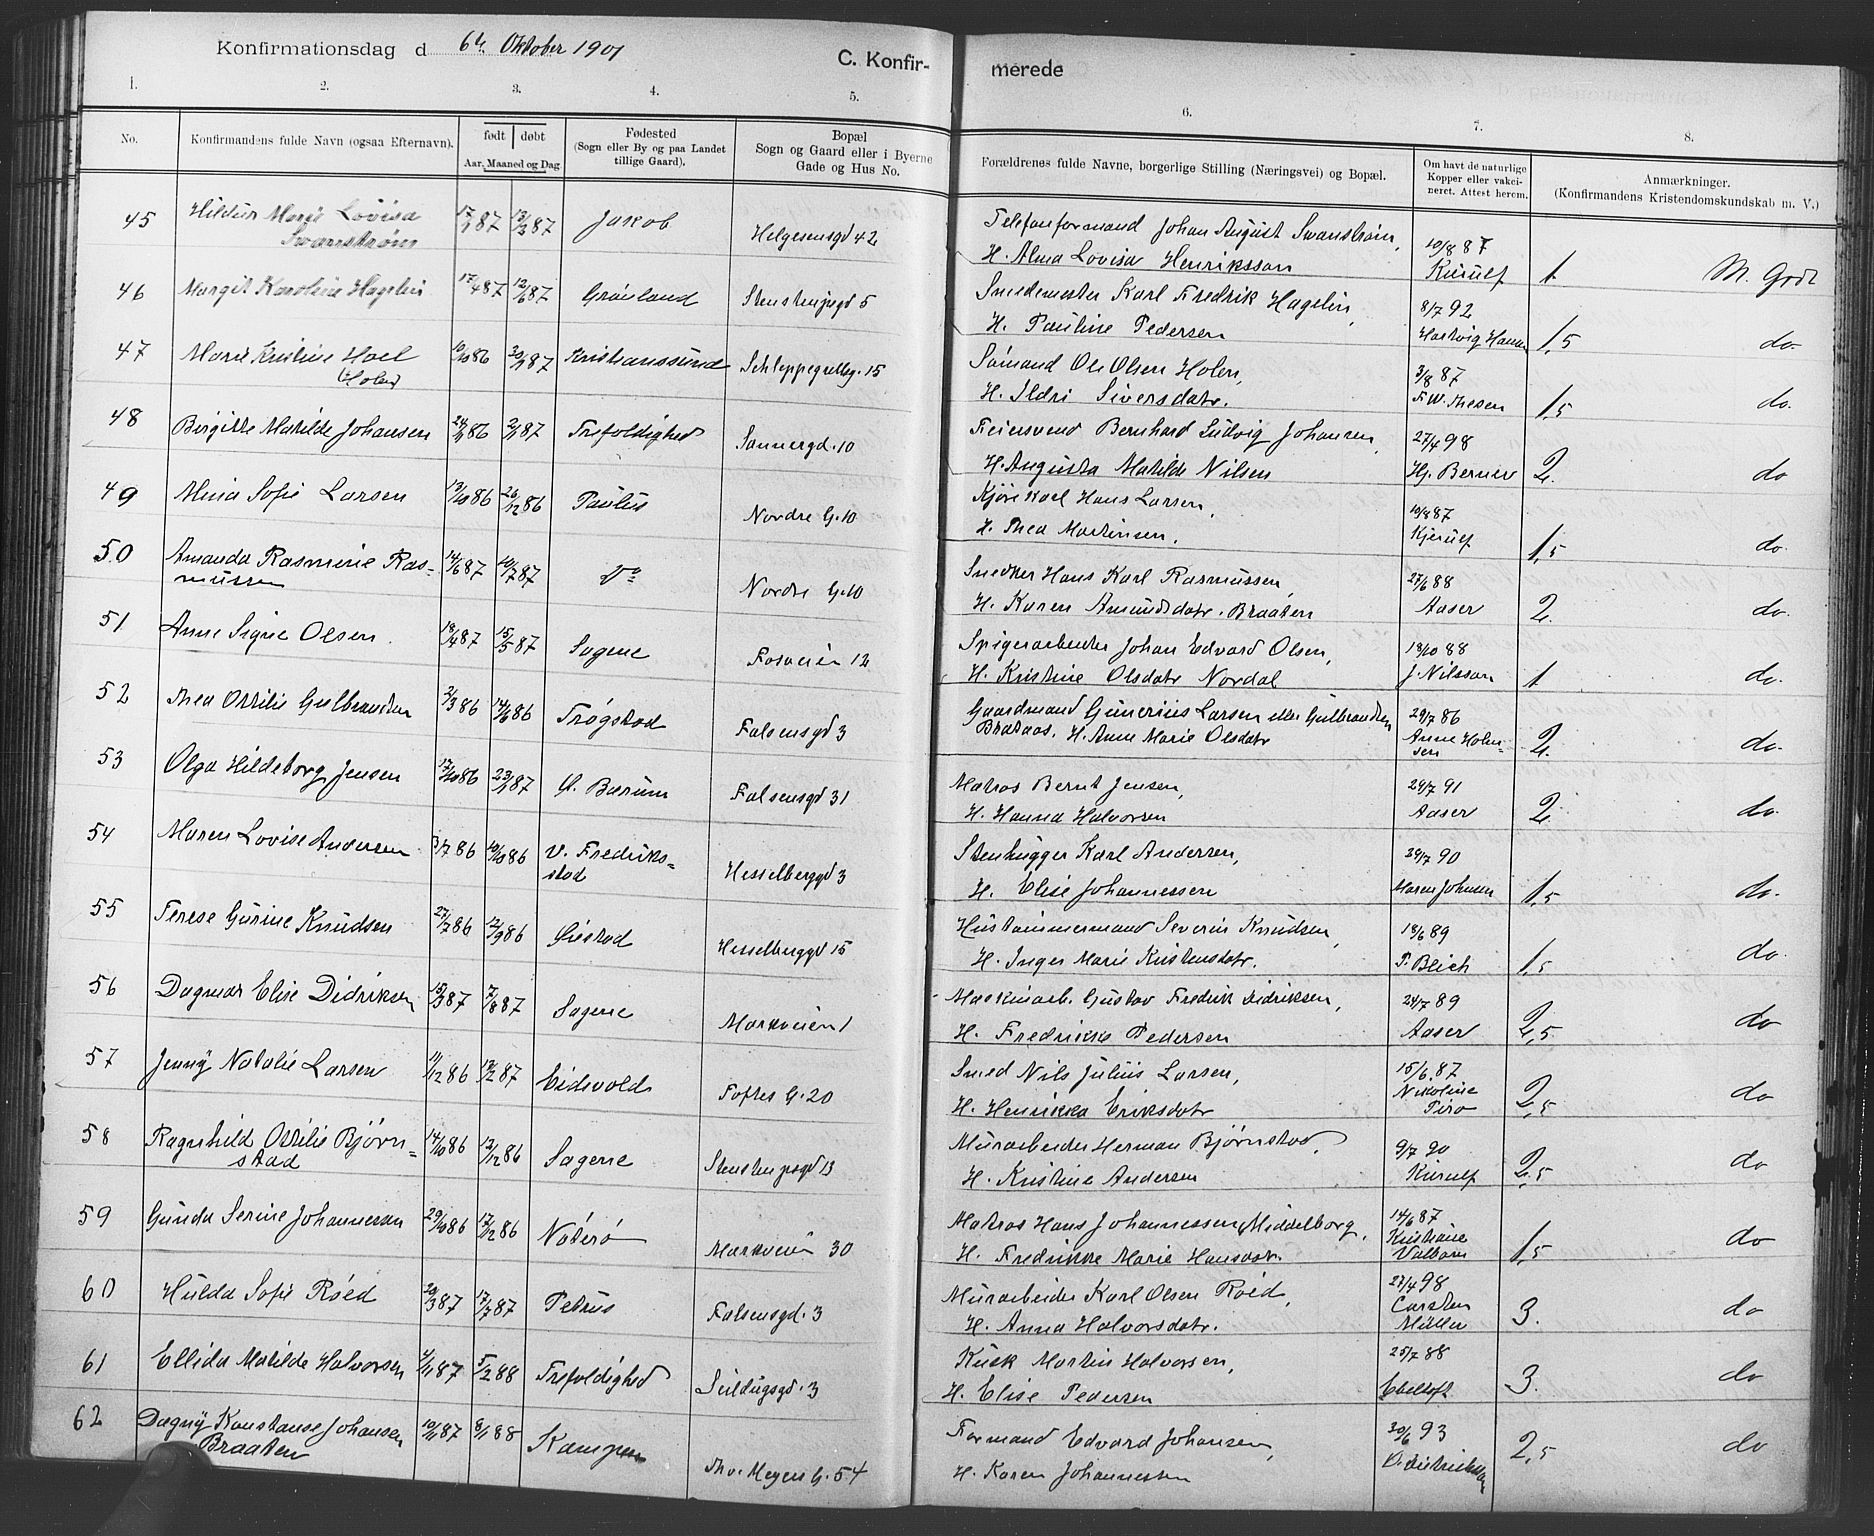 Konfirmationsdag d 6te Oktober 1901
C. Konfir- merede
1. 2. 3. 4. 5. 6. 7. 8.
No.
Konfirmandens fulde Navn (ogsaa Efternavn).
født døbt
Aar, Maaned og Dag
Fødested
(Sogn eller By og paa Landet
tillige Gaard).
Bopæl
Sogn og Gaard eller i Byerne
Gade og Hus No.
Forældrenes fulde Navne, borgerlige Stilling (Næringsvei) og Bopæl.
Om havt de naturlige
Kopper eller vakci-
neret. Attest herom.
Anmærkninger.
(Konfirmandens Kristendomskundskab m. V.)
45 Hildur Marie Lovisa 87 87 Jakob Helgesensgd 42 Telefonformand Johan August Svanstrøm, 10/8 87
Svanstrøm H. Alma Lovisa Henriksson Kierulf 1 M. Godt
46 Margit Karoline Hagelin 17/4 87 12/6 87 Grønland Stenstrupsgd 5 Smedemester Karl Fredrik Hagelin, 8/7 92
H. Pauline Pedersen Hartvig Hansen 1,5 do.
47 Marie Kristine Hoel 10/10 86 87 Kristianssund Schleppegrellsg. 15 Sømand Ole Olsen Holen, 3/8 87
(Holen) H. Ildri Siversdatr. F.W. Thesen 1,5 do.
48 Birgitte Matilde Johansen 86 87 Trefoldighed Sannergd. 10 Feiersvend Bernhard Ludvig Johansen, 27/4 98
H. Augusta Matilde Nilsen Hj. Berner 2. do
49 Alma Sofie Larsen 13/10 86 26/12 86 Paulus Nordre G. 10 Kjørekarl Hans Larsen, 10/8 87
H. Thea Martinsen. Kjerulf 1,5 do.
50 Amanda Rasmine Ras- 14/6 87 10/7 87 Do Nordre G. 10 Snedker Hans Karl Rasmussen, 27/6 88
mussen H. Karen Amundsdatr. Braaten Aaser 2. do.
51 Anne Signe Olsen. 18/4 87 15/5 87 Sagene Fosveien 12 Spigerarbeider Johan Edvard Olsen, 18/10 88
H. Kristine Olsdatr Nordal J. Nilsson 1 do.
52 Thea Otilie Gulbrandsen 2/3 86 14/6 86 Trøgstad Falsensgd 3 Gaardmand Gunerius Larsen eller Gulbrandsen 29/7 86
Brataas, H. Anne Marie Olsdatr Anne Holm-
sen 2. do.
53 Olga Hildeborg Jensen 17/10 86 23/1 87 Ø. Bærum Falsensgd 31 Matros Bernt Jensen, 24/7 91
H. Hanna Halvorsen Aaser 2. do.
54 Maren Lovise Andersen 3/7 86 10/10 86 V. Fredriks- Hesselberggd 3 Stenhugger Karl Andersen, 29/7 90
stad H. Elise Johannessen Maren Johnsen 1,5 do.
55 Terese Gurine Knudsen 27/7 86 12/9 86 Øiestad Hesselberggd 15 Hustømmermand Severin Knudsen, 18/6 89
H. Inger Marie Kristensdatr. P. Blich 1,5 do.
56 Dagmar Elise Didriksen 15/3 87 7/8 87 Sagene Markveien 1 Maskinarb. Gustav Fredrik Didriksen, 24/7 89
H. Fredrikke Pedersen Aaser 2,5 do
57 Jenny Natalie Larsen 11/12 86 13/2 87 Eidsvold Toftes G. 20 Smed Nils Julius Larsen, 15/6. 87
H. Henrikka Eriksdatr Nikoline
Tiro 2,5 do
58 Ragnhild Otilie Bjørn- 14/10 86 12/12 86 Sagene Stenstrupsgd 13 Murarbeider Herman Bjørnstad, 9/7 90
stad H. Kristine Andersen Kierulf 2,5 do
59 Gunda Serine Johannesen 29/10 86 17/12 86 Nøterø Markveien 30 Matros Hans Johannessen, Middelborg, 14/6 87
H. Fredrikke Marie Hansdatr. Kristiane
1,5 do
60 Hulda Sofie Røed 20/3 87 17/7 87 Petrus Falsensgd. 3 Murarbeider Karl Olsen Røed, 27/4 98
H. Anna Halvorsdatr. Carsten
Müller 3. do
61 Ellida Matilde Halvorsen 11 87 5/2 88 Trefoldighed Seildugsgd. 3 Kusk Martin Halvorsen, 25/7 88
H. Elise Pedersen Ebeltoft 3. do
62 Dagny Konstanse Johansen 10/11 87 8/1 88 Kampen Thv. Meyers G. 54 Formand Edvard Johansen, 30/6 93
Braaten H. Karen Johannessen 2,5 do